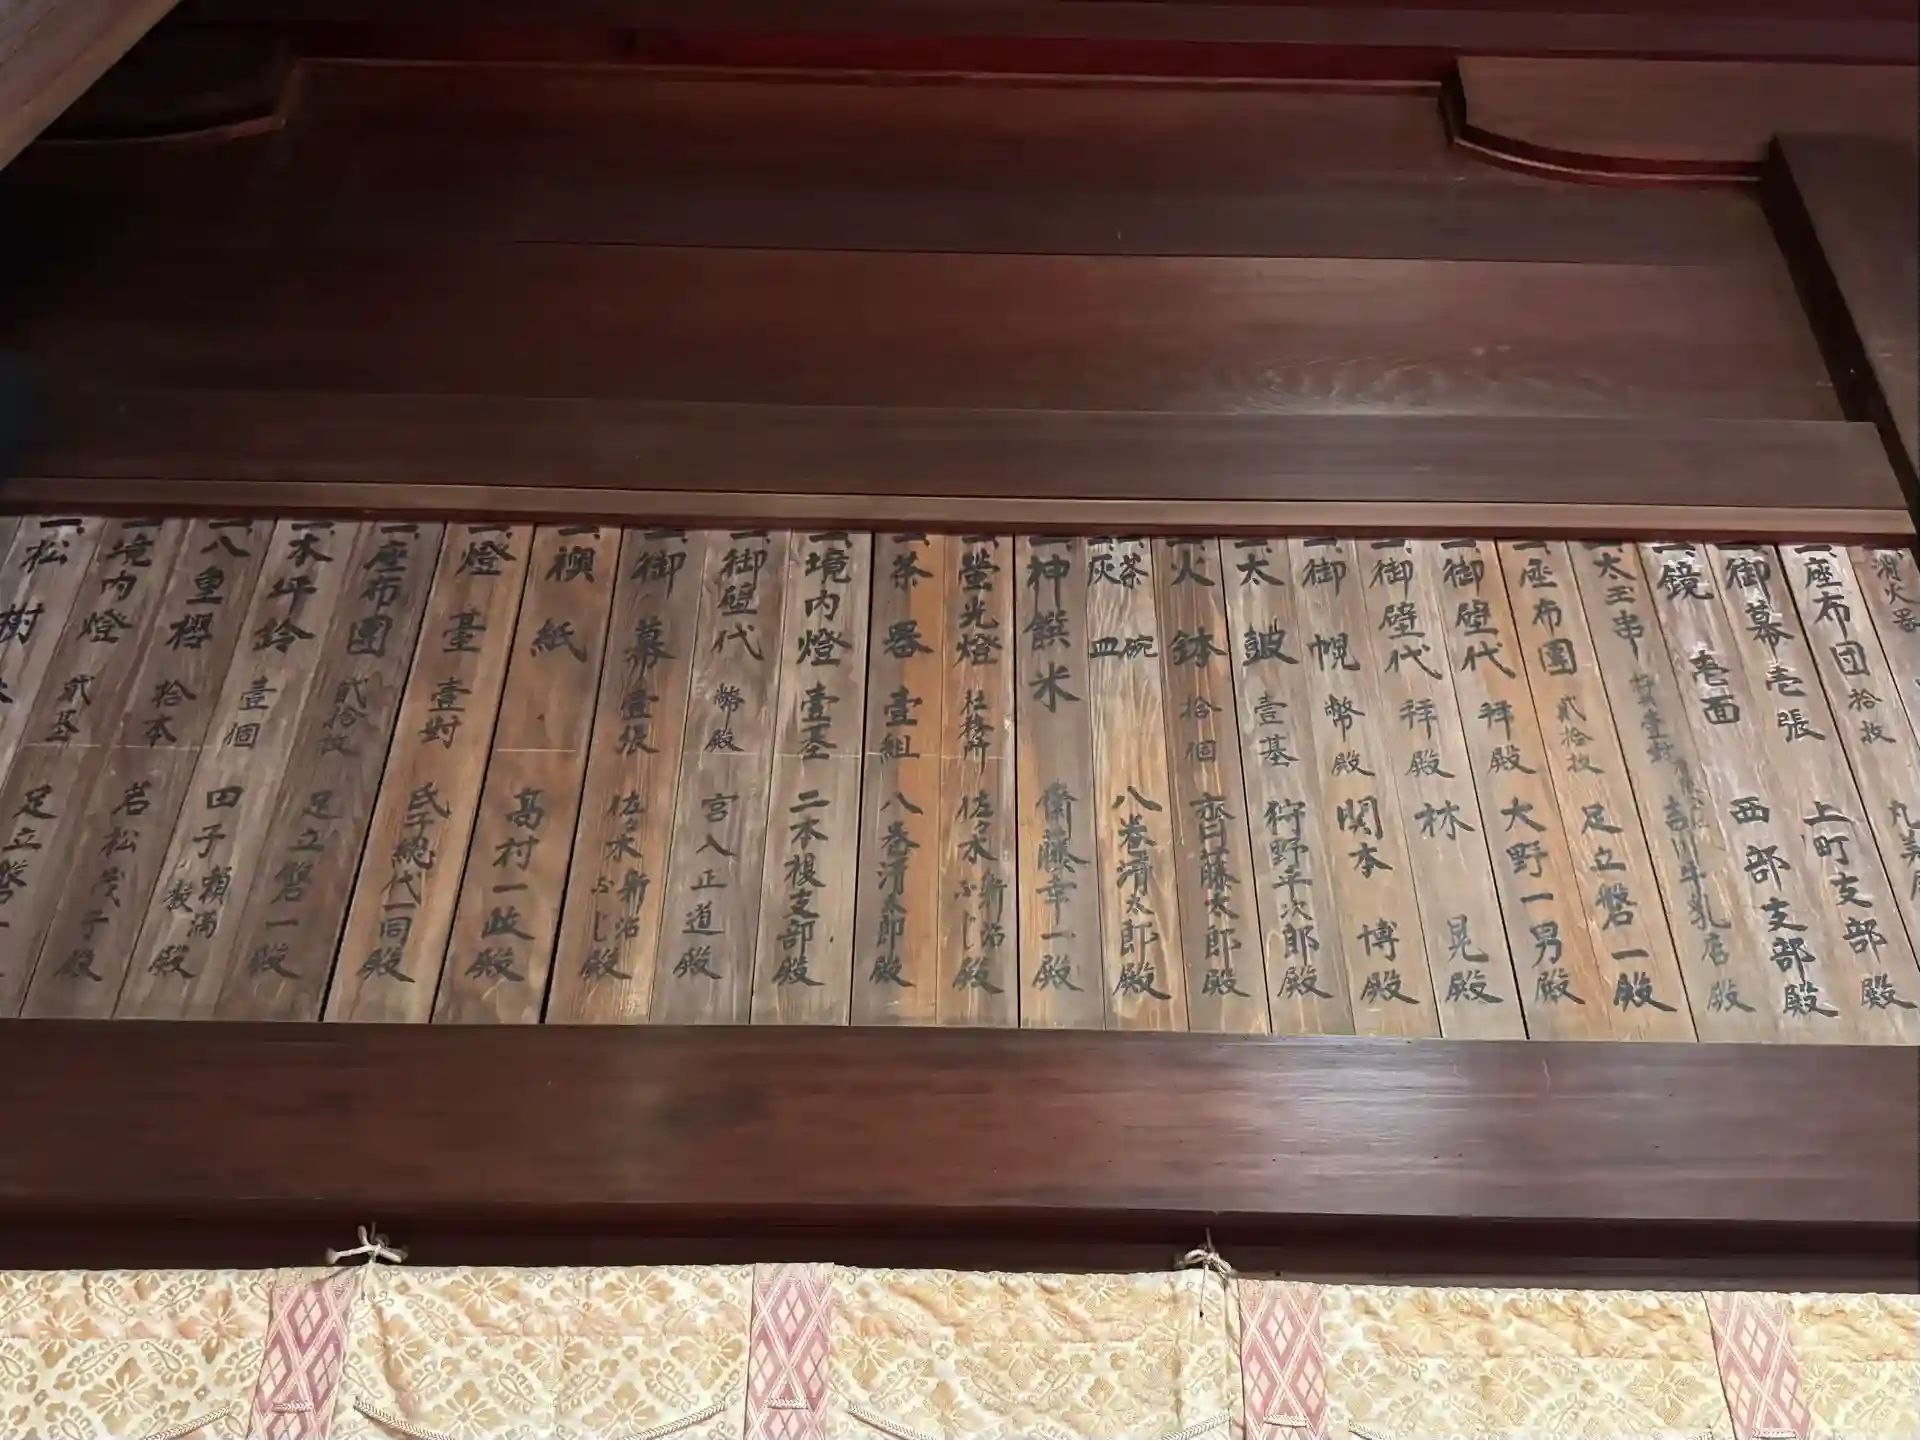 消火器 丸
一、座布団 拾枚 上町支部殿
一、御幕 壱張 西部支部殿
一、鏡 壱面 吉川牛乳店殿
一、太玉串 足立磐一殿
一、座布團 貳拾枚 大野一男殿
一、御壁代 拝殿 林 晃殿
一、御壁代 拝殿 関本 博殿
一、御幌 幣殿 狩野平次郎殿
一、太鼓 壹基 齊藤太郎殿
一、火鉢 拾個 八巻清太郎殿
一、茶碗
灰皿
一、神饌米 齋藤幸一殿
一、螢光燈 社務所 佐々木新治 ふじ殿
一、茶器 壹組 八巻清太郎殿
一、境内燈 壹基 二本榎支部殿
一、御壁代 幣殿 宮入正道殿
一、御幕 壹張 佐々木新治 ふじ殿
一、襖紙 高村一政殿
一、燈臺 壹對 氏子総代一同殿
一、座布團 貳拾枚 足立磐一殿
一、木坪鈴 壹個 田子頼満殿
一、八重櫻 拾本 若松茂子殿
一、境内燈 貳基 足立磐一
一、松樹